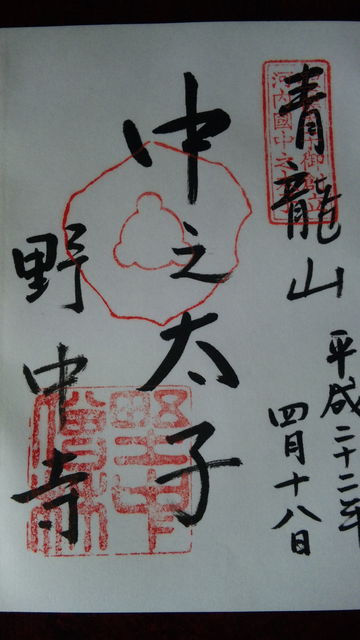 青龍山
平成二十二年
四月十八日
中之太子
野中寺
河内國中之
御創立
野中